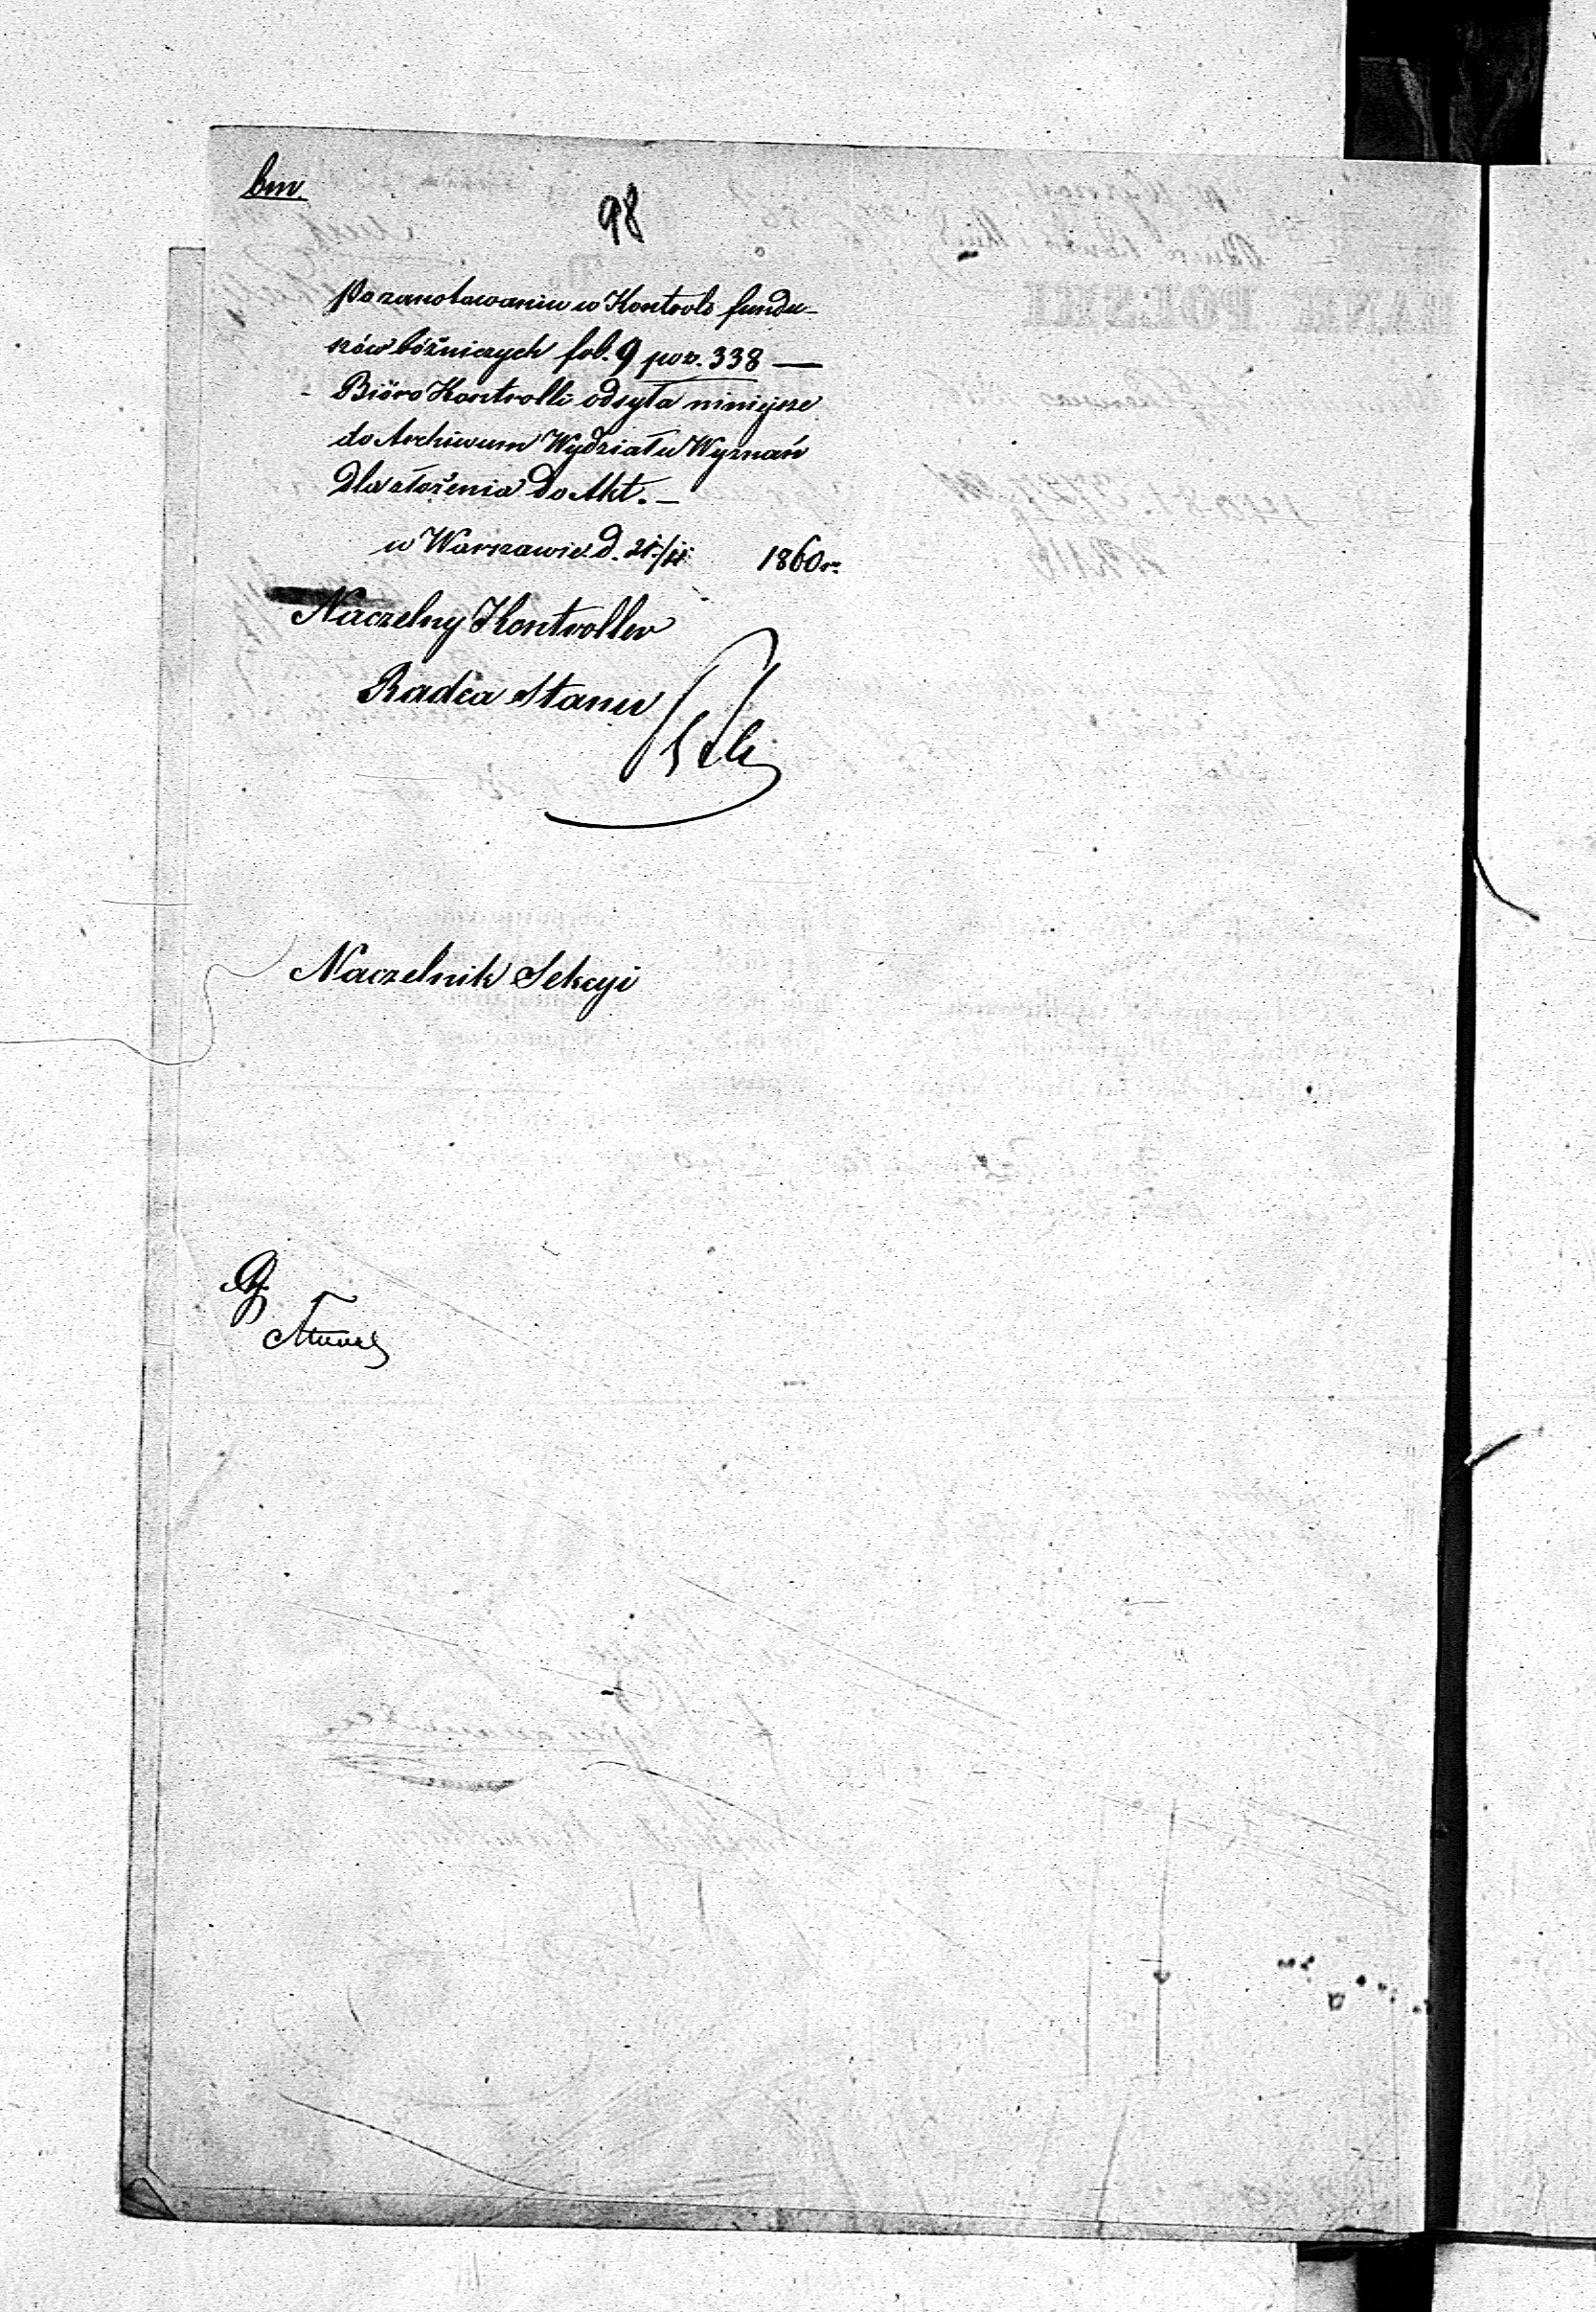 bm.
98
Po zanotowaniu w Kontroli fundu-
szów bóżniczych fol. 9 poz. 338 —
Biöro Kontrolli odsyła niniejsze
do Archiwum Wydziału Wyznań
Dla złożenia do Akt. —
w Warszawie d. 1860 r.
Naczelny Kontroller
Radca Stanu
Naczelnik Sekcyi